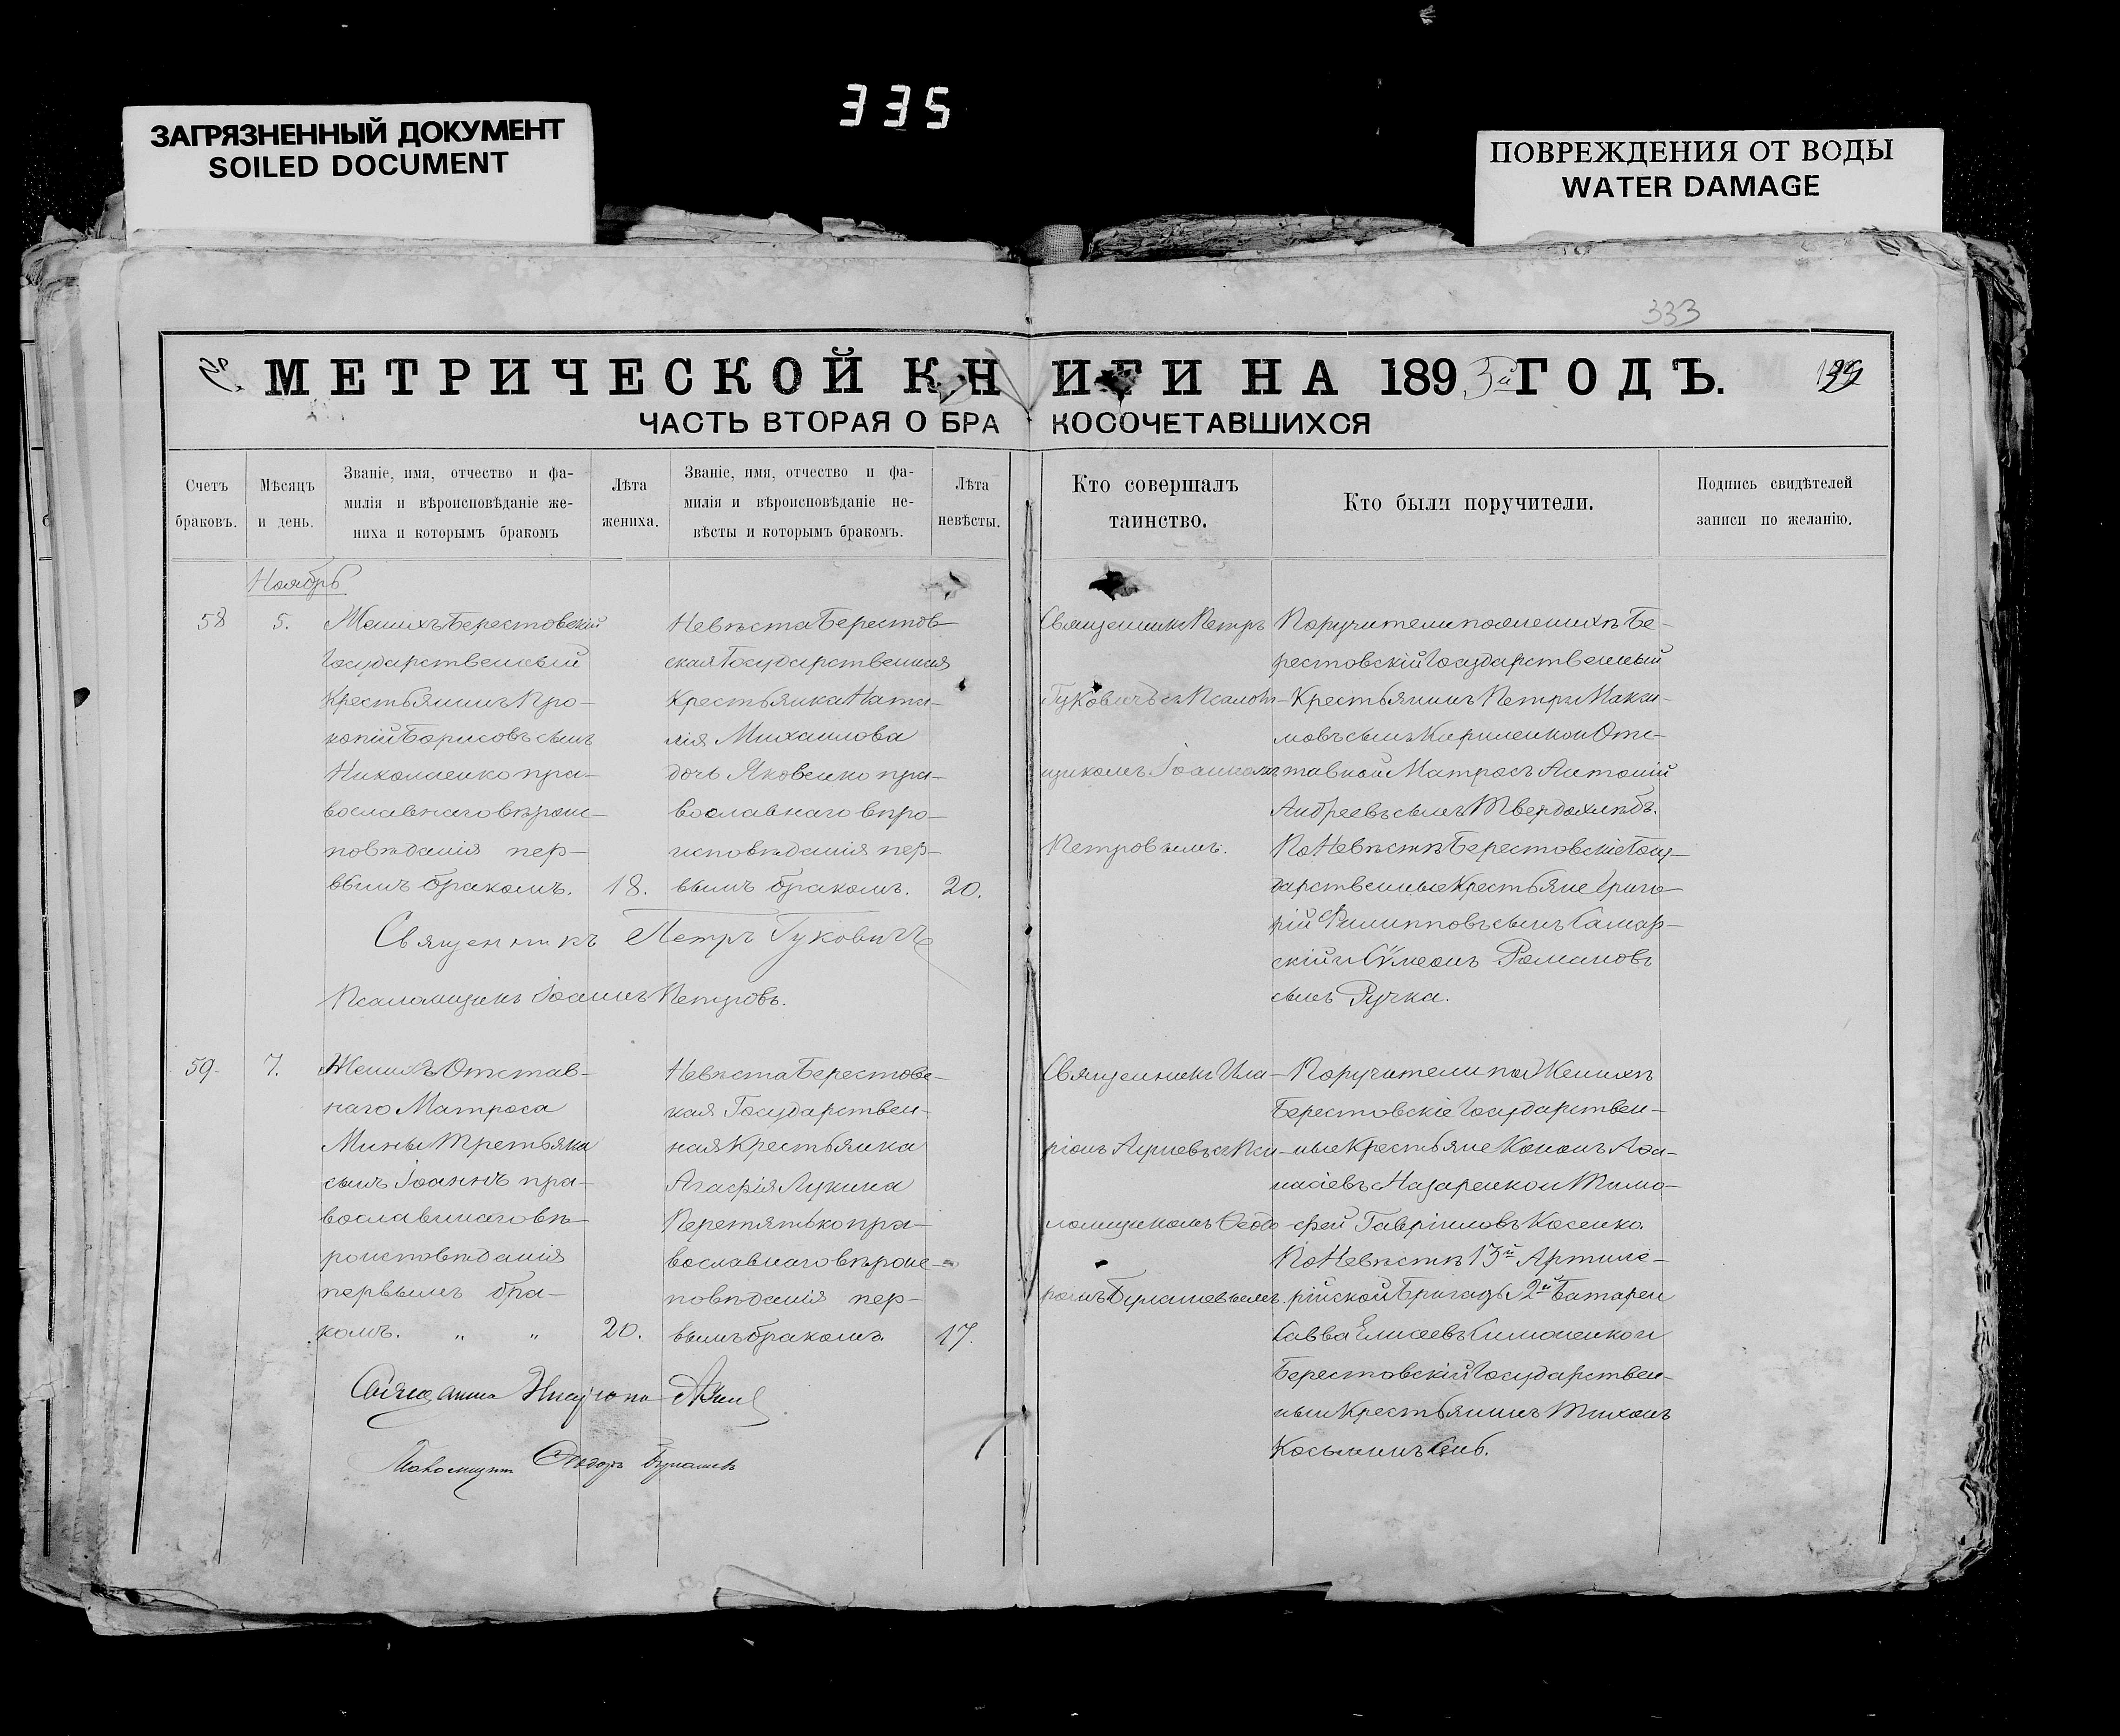 335
ЗАГРЯЗНЕННЫЙ ДОКУМЕНТ
SOILED DOCUMENT
ПОВРЕЖДЕНИЯ ОТ ВОДЫ
WATER DAMAGE
333
МЕТРИЧЕСКОЙ КНИГИ НА 1893й ГОДЪ.
ЧАСТЬ ВТОРАЯ О БРАКОСОЧЕТАВШИХСЯ
Счетъ
браковъ.
Мѣсяцъ
и день.
Званіе, имя, отчество и фа-
милія и вѣроисповѣданіе же-
ниха и которымъ бракомъ
Лѣта
жениха.
Званіе, имя, отчество и фа-
милія и вѣроисповѣданіе не-
вѣсты и которымъ бракомъ.
Лѣта
невѣсты.
Кто совершалъ
таинство.
Кто были поручители.
Подпись свидѣтелей
записи по желанію.
Ноябрь
58
5.
Женихъ Берестовскій
Государственный
Крестьянинъ Про-
копій Борисовъ сынъ
Николаенко пра-
вославнаго вѣроис-
повѣданія пер-
вымъ бракомъ.
18.
Невѣста Берестов-
ская Государственная
Крестьянка Ната-
лія Михаилова
дочь Яковенко пра-
вославнаго вѣро-
исповѣданія пер-
вымъ бракомъ.
20.
Священникъ Петръ
Гуковичъ съ Псалом-
щикомъ Іоанномъ
Петровымъ.
Поручители по женихѣ Бе-
рестовскій Государственный
Крестьянинъ Петръ Макси-
мовъ сынъ Кириленко и Отс-
тавной Матросъ Антоній
Андреевъ сынъ Твердохлѣбъ.
По Невѣстѣ Берестовскіе Госу-
дарственные Крестьяне Григо-
рій Филипповъ сынъ Самар-
скій и Сѵмеонъ Романовъ
сынъ Ручка.
Священникъ Петръ Гуковичъ
Псаломщикъ Іоаннъ Петровъ.
59.
7.
Женихъ Отстав-
наго Матроса
Мины Третьяка
сынъ Іоаннъ пра-
вославнаго вѣ-
роисповѣданія
первымъ бра-
комъ. „ „
20.
Невѣста Берестовс-
кая Государствен-
ная Крестьянка
Агафія Лукина
Перетятько пра-
вославнаго вѣроис-
повѣданія пер-
вымъ бракомъ.
17.
Священникъ Ила-
ріонъ съ Пса-
ломщикомъ Ѳеодо-
ромъ
Поручители по Женихѣ
Берестовскіе Государствен-
ные Крестьяне Кононъ Аѳа-
насіевъ Назаренко и Тимо-
фей Гавріиловъ Косенко.
По Невѣстѣ 13й Артиле-
рійской Бригады 2й Батареи
Савва Елисеевъ Симоненко и
Берестовскій Государствен-
ный Крестьянинъ Тихонъ
Косьминъ